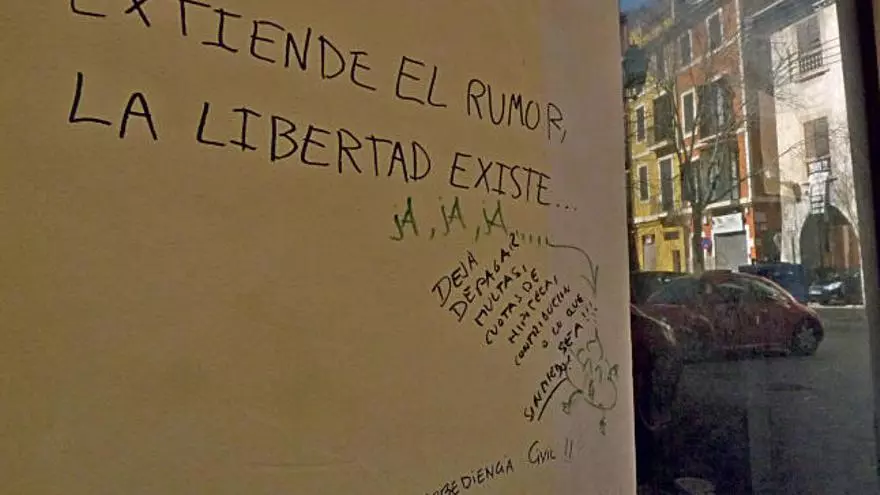 EXTIENDE EL RUMOR,
LA LIBERTAD EXISTE...
jA, jA, jA,,,,,
DEJA
DE PAGAR
MULTAS,
CUOTAS DE
HIPOTECA,
CONTRIBUCIÓN
O LO QUE
SEA!!!
SIN MIEDO!
CIVIL!!